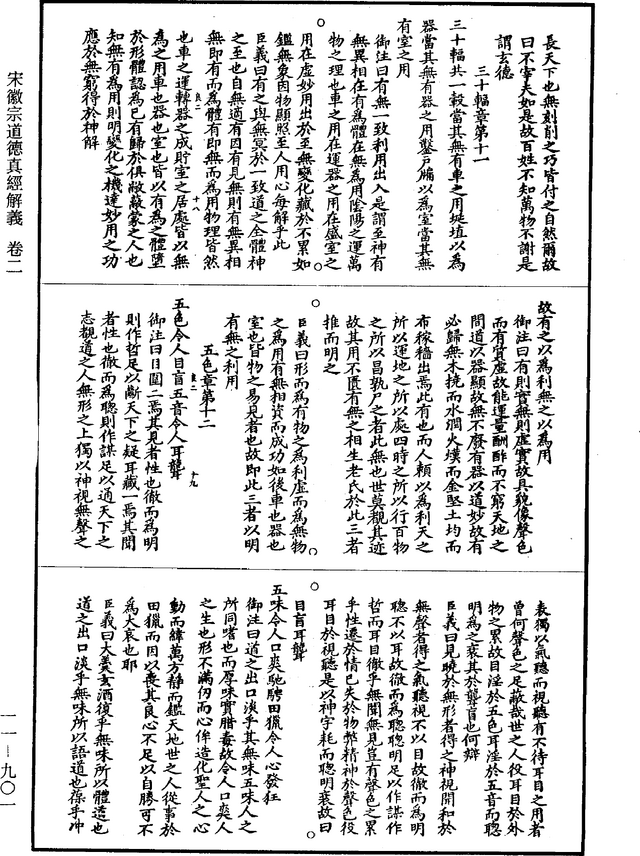 長天下也無刻削之巧皆付之自然爾故
曰不宰夫如是故百姓不知萬物不謝是
謂玄德
三十輻章第十一
三十輻共一轂當其無有車之用埏埴以為
器當其無有器之用鑿戶牖以為室當其無
有室之用
御注曰有無一致利用出入是謂至神有
無異相在有為體在無為用陰陽之運萬
物之理也車之用在運器之用在盛室之
用在虛妙用出於至無變化藏於不累如
鑑無象因物顯照至人用心每解乎此
臣義曰有之與無冥於一致道之全體神
之至也自無適有因有見無則有無異相
無即有而為體有即無而為用物理皆然
也車之運轉器之成貯室之居處皆以無
為之用車也器也室也皆以有為之體墮
於形體認為已有歸於俱敝蔽蒙之人也
知無有為用則明變化之機達妙用之功
應於無窮得於神解
故有之以為利無之以為用
御注曰有則實無則虛實故具貌像聲色
而有質虛故能運量酬酢而不窮天地之
間道以器顯故無不廢有器以道妙故有
必歸無木撓而水潤火熯而金堅土均而
布稼穡出焉此有也而人賴以為利天之
所以運地之所以處四時之所以行百物
之所以昌孰尸之者此無也世莫覩其迹
故其用不匱有無之相生老氏於此三者
推而明之
臣義曰形而為有物之為利虛而為無物
之為用有無相資而成功如後車也器也
室也皆物之易見者也故即此三者以明
有無之利用
五色章第十二
五色令人目盲五音令人耳聾
御注曰目圍二焉其見者性也徹而為明
則作哲足以斷天下之疑耳藏一焉其聞
者性也徹而為聰則作謀足以通天下之
志觀道之人無形之上獨以神視無聲之
表獨以氣聽而視聽有不待耳目之用者
曾何聲色之足蔽哉世之人役耳目於外
物之累故目淫於五色耳淫於五音而聰
明為之衰其於聾盲也何辨
臣義曰見曉於無形者得之神視聞和於
無聲者得之氣聽視不以目故徹而為明
聰不以耳故徹而為聰聰明足以作謀作
哲而耳目徹乎無聞無見豈有聲色之累
乎性遷於情已失於物弊精神於聲色役
耳目於視聽是以神字耗而聰明衰故曰
目盲耳聾
五味令人口爽馳騁田獵令人心發狂
御注曰道之出口淡乎其無味五味人之
所同嗜也而厚味實腊毒故令人口爽人
之生也形不滿仞而心侔造化聖人之心
動而緯萬方靜而鑑天地世之人從事於
田獵而因以喪其良心不足以自勝可不
為大哀也耶
臣義曰大羹玄酒復乎無味所以體道也
道之出口淡乎無味所以語道也葆乎沖
宋徽宗道德真經解義 卷二
一一—九〇一